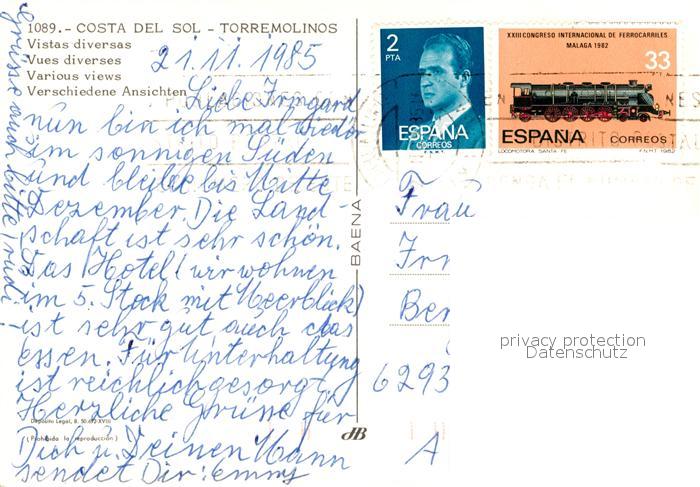 1089.- COSTA DEL SOL - TORREMOLINOS
Vistas diversas
Vues diverses
Various views
Verschiedene Ansichten
21.11.1985
Liebe Irmgard
nun bin ich mal wieder
im sonnigen Süden
und bleibe bis Mitte
Dezember. Die Land-
schaft ist sehr schön.
Das Hotel (wir wohnen
im 5. Stock mit Meerblick)
ist sehr gut auch das
essen. Für Unterhaltung
ist reichlich gesorgt.
Herzliche Grüsse für
Dich u. Deinen Mann
sendet Dir: emmy
Grüsse auch bitte
Depósito Legal, B. 50.692-XVIII
(Prohibida la reproducción)
BAENA
2
PTA
ESPAÑA
CORREOS
XXIII CONGRESO INTERNACIONAL DE FERROCARRILES
MALAGA 1982
33
ESPAÑA CORREOS
LOCOMOTORA SANTA FE F.N.M.T. 1982
Frau
Irm
Ber
6293
A
privacy protection
Datenschutz